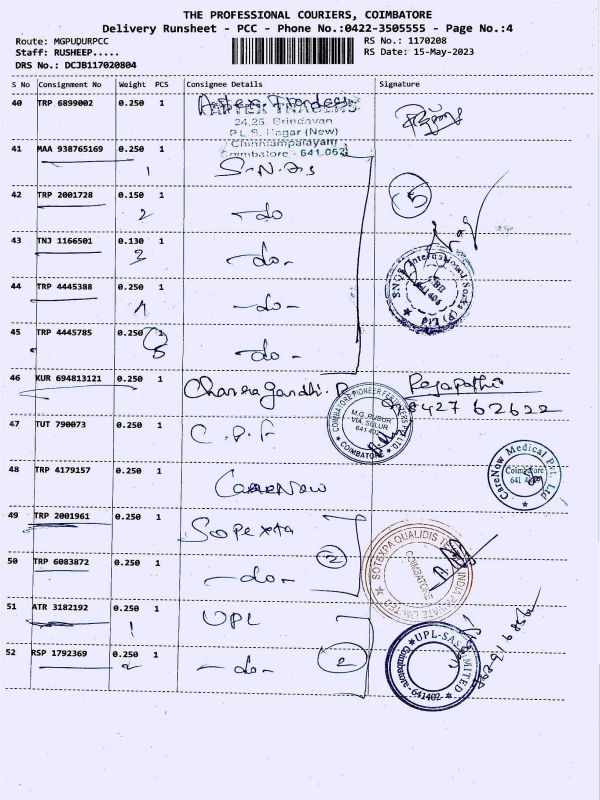 THE PROFESSIONAL COURIERS, COIMBATORE
Delivery Runsheet - PCC - Phone No.:0422-3505555 - Page No.:4
Route: MGPUDURPCC
RS No.: 1170208
Staff: RUSHEEP.....
RS Date: 15-May-2023
DRS No.: DCJB117020804
S No Consignment No Weight PCS Consignee Details Signature
40 TRP 6899002 0.250 1
24,25, Brindavan
P.L.S. Nagar (New)
Chinniampalayam
Coimbatore - 641 062
41 MAA 938765169 0.250 1 S.N.Q.S
1
42 TRP 2001728 0.150 1 -do
2
5
43 TNJ 1166501 0.130 1 -do-
3
44 TRP 4445388 0.250 1 -do-
4
SNQS International Socks (P) Ltd
45 TRP 4445785 0.250 1 -do-
5
46 KUR 694813121 0.250 1 Chandra Gandhi. P
98427 62622
COIMBATORE PIONEER FERTILIZERS PVT LTD
M.G. PUDUR
VIA, SULUR
641 402
COIMBATORE
47 TUT 790073 0.250 1 C.P.F
CareNow Medical Pvt. Ltd
Coimbatore
48 TRP 4179157 0.250 1 CareNow
49 TRP 2001961 0.250 1 Sopexta
2
SOTEXPA QUALIDIS INDIA PRIVATE LIMITED
COIMBATORE
50 TRP 6083872 0.250 1 -do-
51 ATR 3182192 0.250 1 UPL
1
52 RSP 1792369 0.250 1 -do-
2
2
UPL-SAS LIMITED
Coimbatore-641402